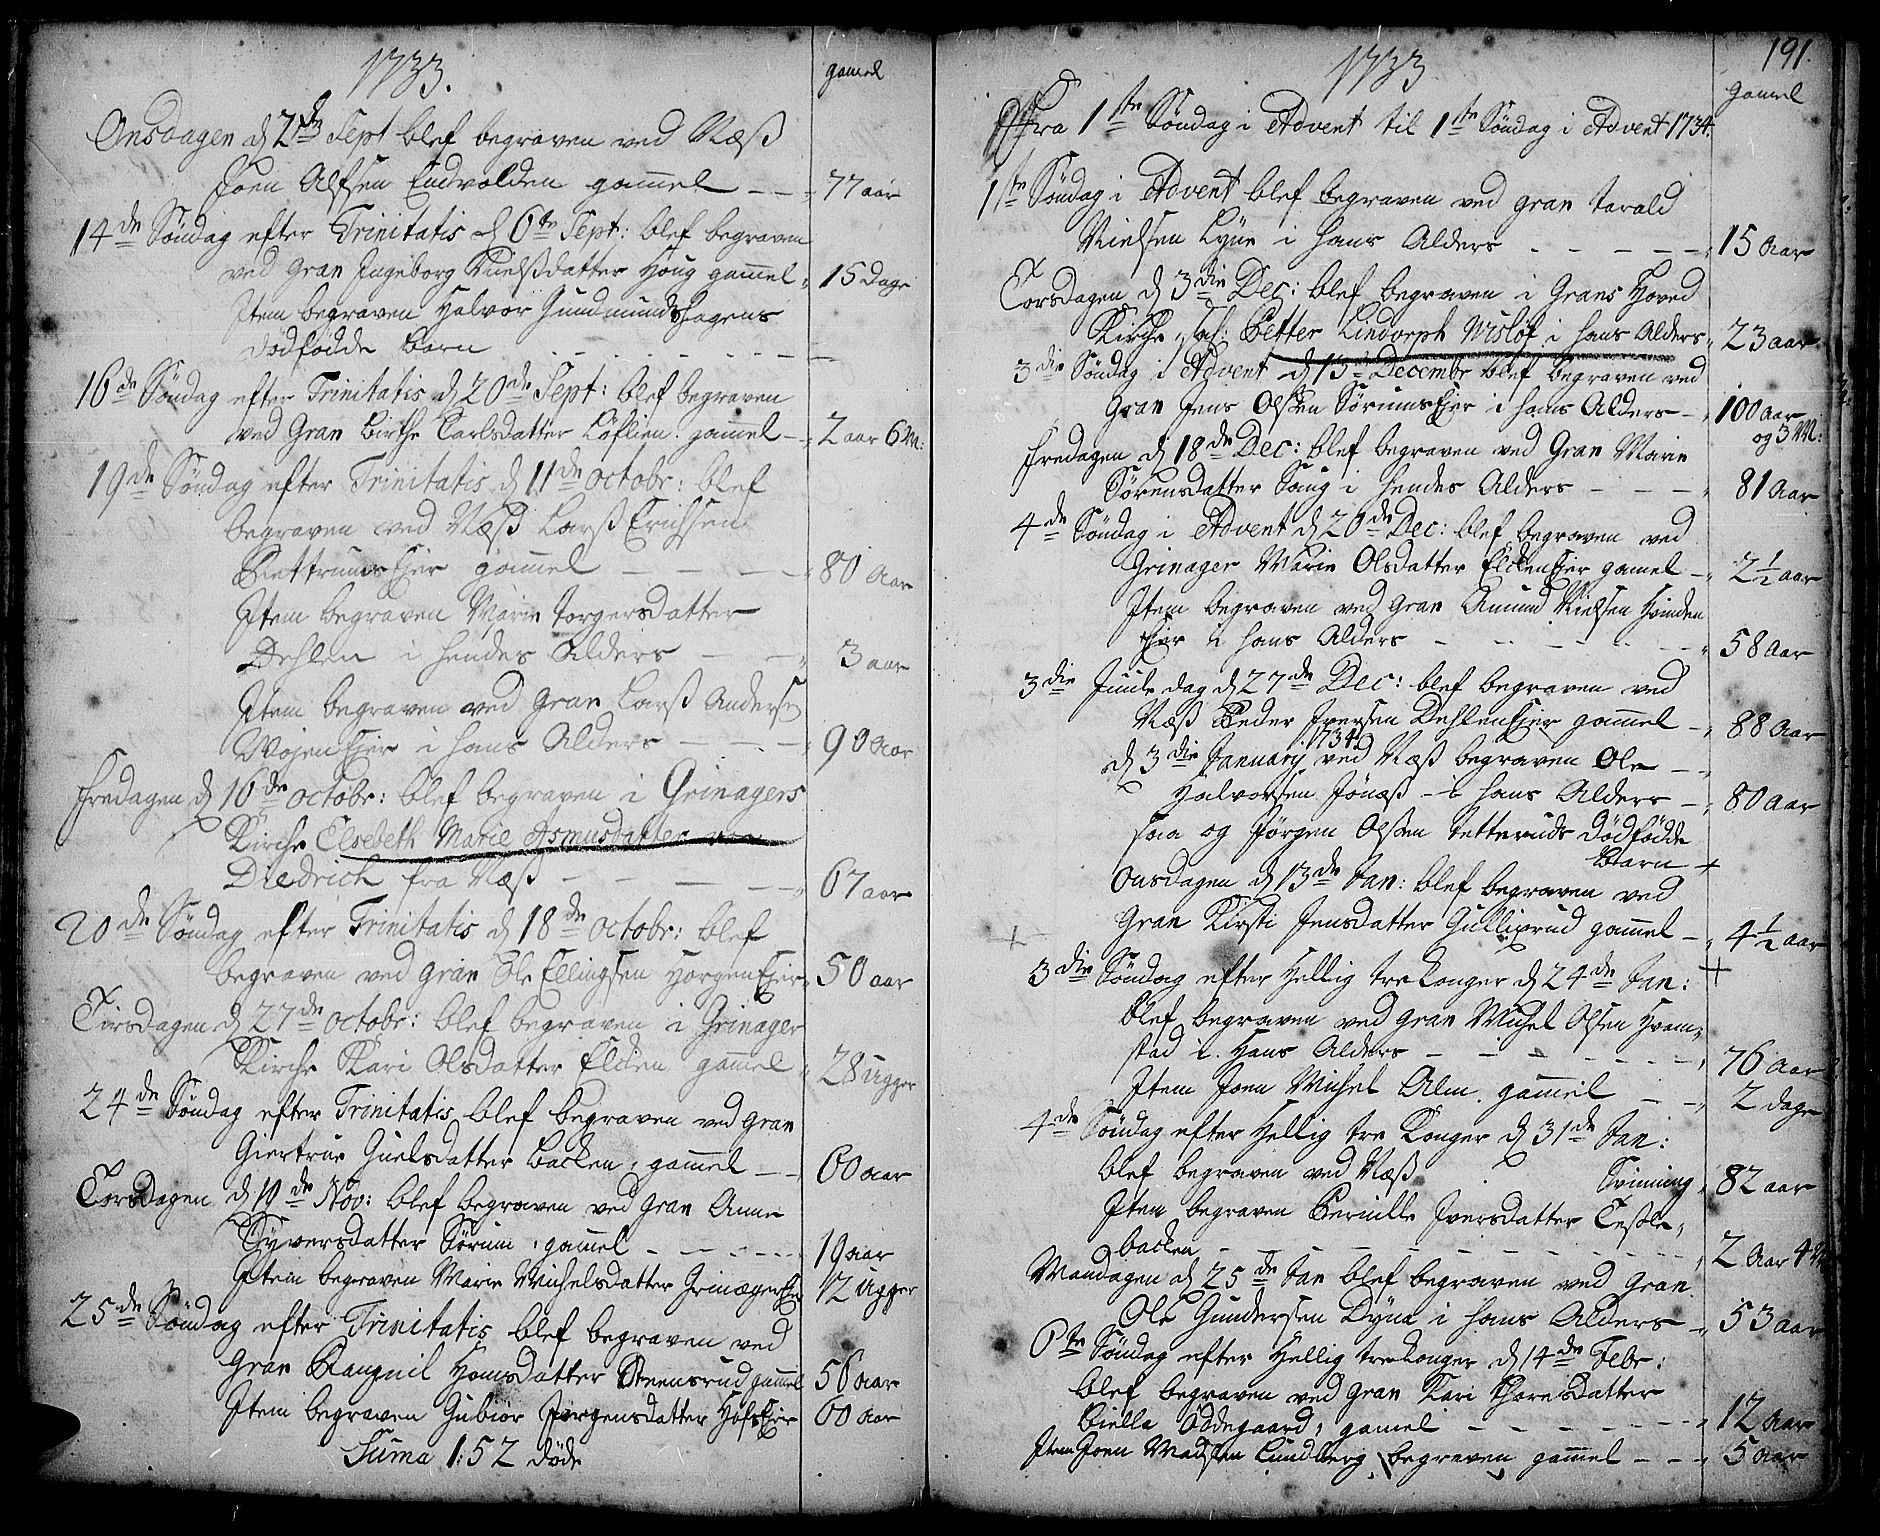 1733.
gamel
Onsdagen d 2den Sept blef begraven ved Næß
Joen Alfsen Endvolden gammel - - 77 aar
14de Søndag efter Trinitatis d 6te Sept: blef begraven
ved Gran Ingeborg Nielsdatter Houg gammel 15 Dage
Item begraven Halvor Gudmundshagens
dødfødde Barn - - -
16de Søndag efter Trinitatis d 20de Sept: blef begraven
ved Gran Birthe Carlsdatter Løflien gammel - 2 aar 6 M:
19de Søndag efter Trinitatis d 11de octobr: blef
begraven ved Næß Larß Erichsen
Eier gammel - - - 80 Aar
Item begraven Marie Torgersdatter
Dehlen i hendes Alders - - 3 aar
Item begraven ved Gran Larß Anders
Vøien Eier i hans Alders - - - 90 Aar
Fredagen d 16de octobr: blef begraven i Grinagers
Kirche Elsebeth Marie Asmusdatter von
Diedrich fra Næß - - - 67 aar
20de Søndag efter Trinitatis d 18de octobr: blef
begraven ved Gran Ole Ellingsen Horgen Eier 50 aar
Tirsdagen d 27de octobr: blef begraven i Grinager
Kirche Kari Olsdatter Elden gammel 28 Ugger
24de Søndag efter Trinitatis blef begraven ved Gran
Giertrue Guelsdatter Backen, gammel - - 60 aar
Torsdagen d 10de Nov: blef begraven ved Gran Anne
Syversdatter Sørum, gammel - - - 19 aar
Item begraven Marie Michelsdatter Grinager Eie 12 Ugger
25de Søndag efter Trinitatis blef begraven ved
Gran Rangnil Hansdatter Steensrud gammel 56 aar
Item begraven Gubiør Jørgensdatter Hofs Eier 60 aar
Suma 1:52 døde
191.
1733
gamel
Fra 1ste Søndag i Advent til 1ste Søndag i Advent 1734.
1ste Søndag i Advent blef begraven ved Gran Tarald
Nielsen Lyne i hans Alders - - - 15 Aar
Torsdagen d 3die Dec: blef begraven i Grans Hoved
Kirche, Petter Lindorph Wisløf i hans Alders 23 aar
3die Søndag i Advent d 13de Decembr blef begraven ved
Gran Jens Olsen Sørums Eier i hans Alders - 100 aar
og 3 M:
Fredagen d 18de Dec: blef begraven ved Gran Marie
Sørensdatter Saug i hendes Alders - - - 81 Aar
4de Søndag i Advent d 20de Dec: blef begraven ved
Grinager Marie Olsdatter Elden Eier gamel - 2 1/2 aar
Item begraven ved Gran Amund Nielsen Hvinden
Eier i hans Alders - - - 58 Aar
3die Juule dag d 27de Dec: blef begraven ved
Næß Peder Iversen Dehlen Eier gammel - 88 Aar
d 3die January 1734 ved Næß begraven Ole -
Halvorsen Jønæß - i hans Alders - 80 Aar
saa og Jørgen Olsen Tetteruds Dødfødde
Barn +
Onsdagen d 13de Jan: blef begraven ved
Gran Kirsti Jensdatter Gullixrud gammel - 4 1/2 aar
3die Søndag efter Hellig tre Konger d 24de Jan: +
blef begraven ved Gran Michel Olsen Hvam,
stad i Hans Alders - - - 76 Aar
Item Joen Michel Alm. gammel - - 2 dage
4de Søndag efter Hellig tre Konger d 31de Jan:
blef begraven ved Næß Svinning 82 aar
Item begraven Pernille Iversdatter Teßle,
backen - - - 2 Aar 4 M
Mandagen d 25de Jan blef begraven ved Gran
Ole Gundersen Dyna i hans Alders - 53 aar
6te Søndag efter Hellig tre Konger d 14de Febr:
blef begraven ved Gran Kari Tharesdatter
Biella Ødegaard, gamel - - - 12 Aar
Item Joen Madsen Lundberg, begraven, gammel - - 5 Aar